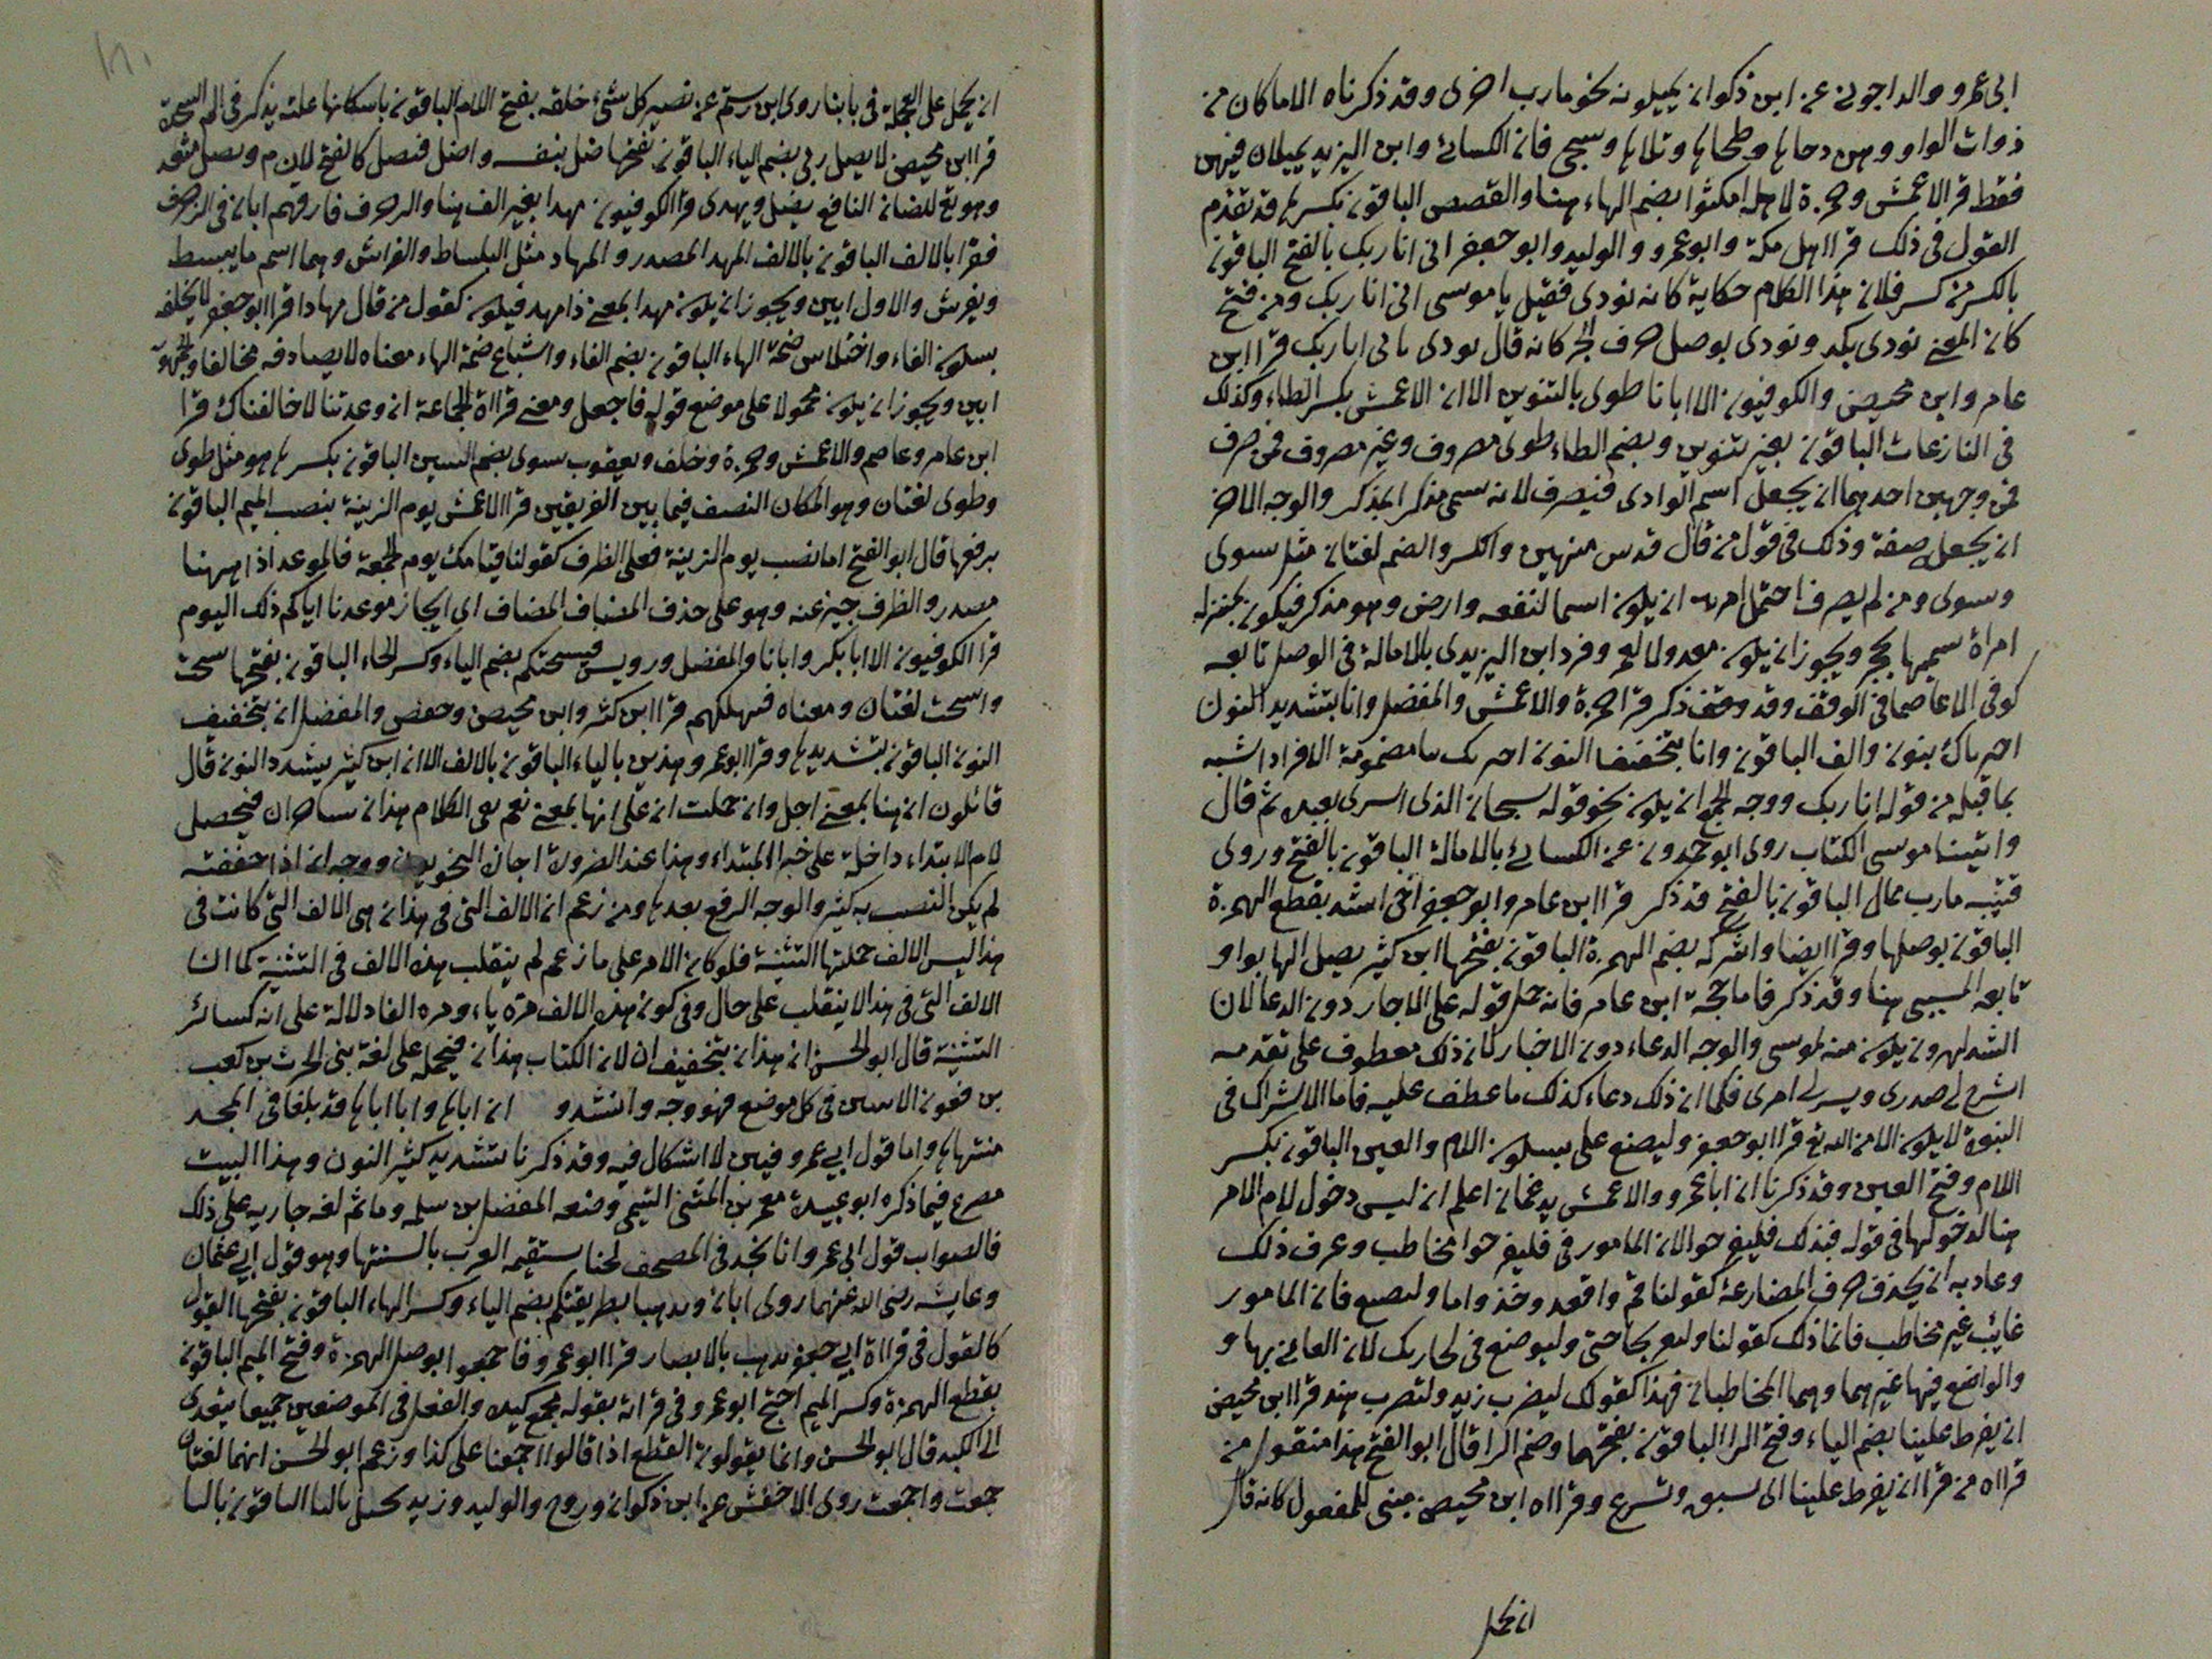 ابى عمرو والداجونى عن ابن ذكوان يميلونه نحو مارب اخرى وقد ذكرناه الا ما كان من
ذوات الواو وهن دحاها وطحاها وتلاها وسجى فان الكسائى وابن اليزيد يميلان فيهن
فقط قرا الاعمش وحمزة لاهله امكثوا بضم الهاء هنا والقصص الباقون بكسرها قد تقدم
القول فى ذلك قرا اهل مكة وابو عمرو والوليد وابو جعفر انى انا ربك بالفتح الباقون
بالكسر من كسر فلان هذا الكلام حكاية كانه نودى فقيل يا موسى انى انا ربك ومن فتح
كان المعنى نودى بكد ونودى بوصل حرف الجر كانه قال نودى بانى انا ربك قرا ابن
عامر وابن محيصن والكوفيون الا ابانا طوى بالتنوين الا ان الاعمش بكسر الطاء وكذلك
فى النازعات الباقون بغير تنوين وبضم الطاء طوى مصروف وغير مصروف فمن صرف
فمن وجهين احدهما ان يجعل اسم الوادى فينصرف لانه سمى مذكر المذكر والوجه الاخر
ان يجعل صفة وذلك فى قول من قال قدس مرتين والكسر والضم لغتان مثل سوى
وسوى ومن لم يصرف احتمل امرين ان يكون اسما لبقعة وارض وهو مذكر فيكون بمنزلة
امراة سميها بحجر ويجوز ان يكون معدولا لعمر وفرد ابن اليزيدى بالامالة فى الوصل تابعه
كوفى الا عاصما فى الوقف وقد وقف ذكر قرا حمزة والاعمش والمفضل وانا بتشديد النون
اخترناك بنون والف الباقون وانا بتخفيف النون اخترتك بتا مضمومة الافراد اشبه
بما قبله من قوله انا ربك ووجه الجمع ان يكون نحو قوله سبحان الذى اسرى بعبده ثم قال
واتينا موسى الكتاب روى ابو حمدون عن الكسائى بالامالة الباقون بالفتح وروى
قتيبه مارب بمال الباقون بالفتح قد ذكر قرا ابن عامر وابو جعفر اخى اشدد بقطع الهمزة
الباقون بوصلها وقرا ايضا واشركه بضم الهمزة الباقون بفتحها ابن كثير يصل الها بواو
تابعه المسيبى هنا وقد ذكر فاما حجة ابن عامر فانه حمل قوله على الاخبار دون الدعا لان
الشد لهرون يكون منه لموسى والوجه الدعاء دون الاخبار لان ذلك معطوف على تقدمه
اشرح لى صدرى ويسر لى امرى فكما ان ذلك دعاء كذلك ما عطف عليه فاما الاشراك فى
النبوة لا يكون الا من الله تع قرا ابو جعفر وليصنع على بسكون اللام والعين الباقون بكسر
اللام وفتح العين وقد ذكرنا ان ابا عمرو والاعمش يدغمان اعلم ان ليس دخول لام الامر
هنا لدخولها فى قوله فبذلك فليفرحوا لان المامور فى فليفرحوا مخاطب وعرف ذلك
وعادته ان يحذف حرف المضارعة كقولنا قم واقعد وخذ واما ولتصنع فان المامور
غايب غير مخاطب فانما ذلك كقولنا ولتعن بحاجتى وليوضع فى تجارتك لان العانى بها و
والواضع فيها غيرهما وهما المخاطبان فهذا كقولك ليضرب زيد ولتضرب هند قرا ابن محيصن
ان يفرط علينا بضم الياء وفتح الرا الباقون بفتحهما وضم الرا قال ابو الفتح هذا منقول من
قراه من قرا ان يفرط علينا اى يسبق وتسرع وقراه ابن محيصن مبنى للمفعول كانه قال
ان يحمل
ان يحمل على العجلة فى بابنا روى ابن رستم عن نصير كل شىء خلقه بفتح اللام الباقون باسكانها علته يذكر فى الم السجدة
قرا ابن محيصن لا يضل ربى بضم الياء الباقون بفتحها ضل بنفسه واضل فنصل كالفتح لازم ويصل متعد
وهو تع للضان النافع يضل ويهدى قرا الكوفيون مهدا بغير الف هنا والزخرف فارقهم ابان فى الزخرف
فقرا بالالف الباقون بالالف المهد المصدر والمهاد مثل البساط والفراش وهما اسم ما يبسط
ويفرش والاول ابين ويجوز ان يكون مهدا بمعنى ذا مهد فيكون كقول من قال مهادا قرا ابو جعفر لا نخلفه
بسكون الفاء واختلاس ضمة الهاء الباقون بضم الفاء واشباع ضمة الهاء معناه لا يصادفه مخالفا والجمهور
ابين ويجوز ان يكون محمولا على موضع قوله فاجعل ومعنى قراة الجماعة ان وعدتنا لا خالفناك قرا
ابن عامر وعاصم والاعمش وحمزة وخلف ويعقوب سوى بضم السين الباقون بكسرها هو مثل طوى
وطوى لغتان وهو المكان النصف فيما بين الفريقين قرا الاعمش يوم الزينة بنصب الميم الباقون
برفعها قال ابو الفتح اما نصب يوم الزينة فعلى الظرف كقولنا قيامك يوم الجمعة فالموعد اذا ههنا
مصدر والظرف خبر عنه وهو على حذف المضاف المضاف اى ايجاز موعدنا اياكم ذلك اليوم
قرا الكوفيون الا ابا بكر وابانا والمفضل ورويس فيسحتكم بضم الياء وكسر الحاء الباقون بفتحها سحت
واسحت لغتان ومعناه فيهلكهم قرا ابن كثير وابن محيصن وحفص والمفضل ان بتخفيف
النون الباقون بتشديدها وقرا ابو عمرو هذين بالياء الباقون بالالف الا ان ابن كثير يشدد النون قال
قائلون ان هنا بمعنى اجل وان حملت ان على انها بمعنى نعم بقى الكلام هذان ساحران فيحصل
لام الابتداء داخلة على خبر المبتداء وهذا عند الضرورة اجازه النحويون ووجه ان اذا خففت
لم يكن النصب به كثير والوجه الرفع بعدها ومن زعم ان الالف التى فى هذان هى الالف التى كانت فى
هذا ليس الالف جملتها التثنية فلو كان الامر على ما زعم لم ينقلب هذه الالف فى التثنية كما ان
الالف التى فى هذا لا ينقلب على حال وفى كون هذه الالف مرة ياء ومره الفا دلالة على انه كسائر
التثنية قال ابو الحسن ان هذان بتخفيف ان لان الكتاب هذان فيحمله على لغة بنى الحرث بن كعب
من فعون الاسين فى كل موضع فهو وجه وانشدو ان اباها وابا اباها قد بلغا فى المجد
منتهاها واما قول ابى عمرو فبين لا اشكال فيه وقد ذكرنا تشديد كثير النون وهذا البيت
مصرع فيما ذكره ابو عبيدة معمر بن المثنى التيمى وضعه المفضل بن سلمه وما ثم لغه جاريه على ذلك
فالصواب قول ابى عمرو انا نجد فى المصحف لحنا ستقيمه العرب بالسنتها وهو قول ابى عثمان
وعايشه رضى الله عنهما روى ابان ويذهبا بطريقتكم بضم الياء وكسر الهاء الباقون بفتحها القول
كالقول فى قراة ابى جعفر يذهب بالابصار قرا ابو عمرو فاجمعوا بوصل الهمزة وفتح الميم الباقون
بقطع الهمزة وكسر الميم احتج ابو عمرو فى قراته بقوله فجمع كيده والفعل فى الموضعين جميعا يتعدى
الى الكيد قال ابو الحسن وانما يقولون القطع اذا قالوا اجمعنا على كذا وزعم ابو الحسن انهما لغتان
جمعت واجمعت روى الاخفش عن ابن ذكوان وروح والوليد وزيد تخيل بالتا الباقون باليا